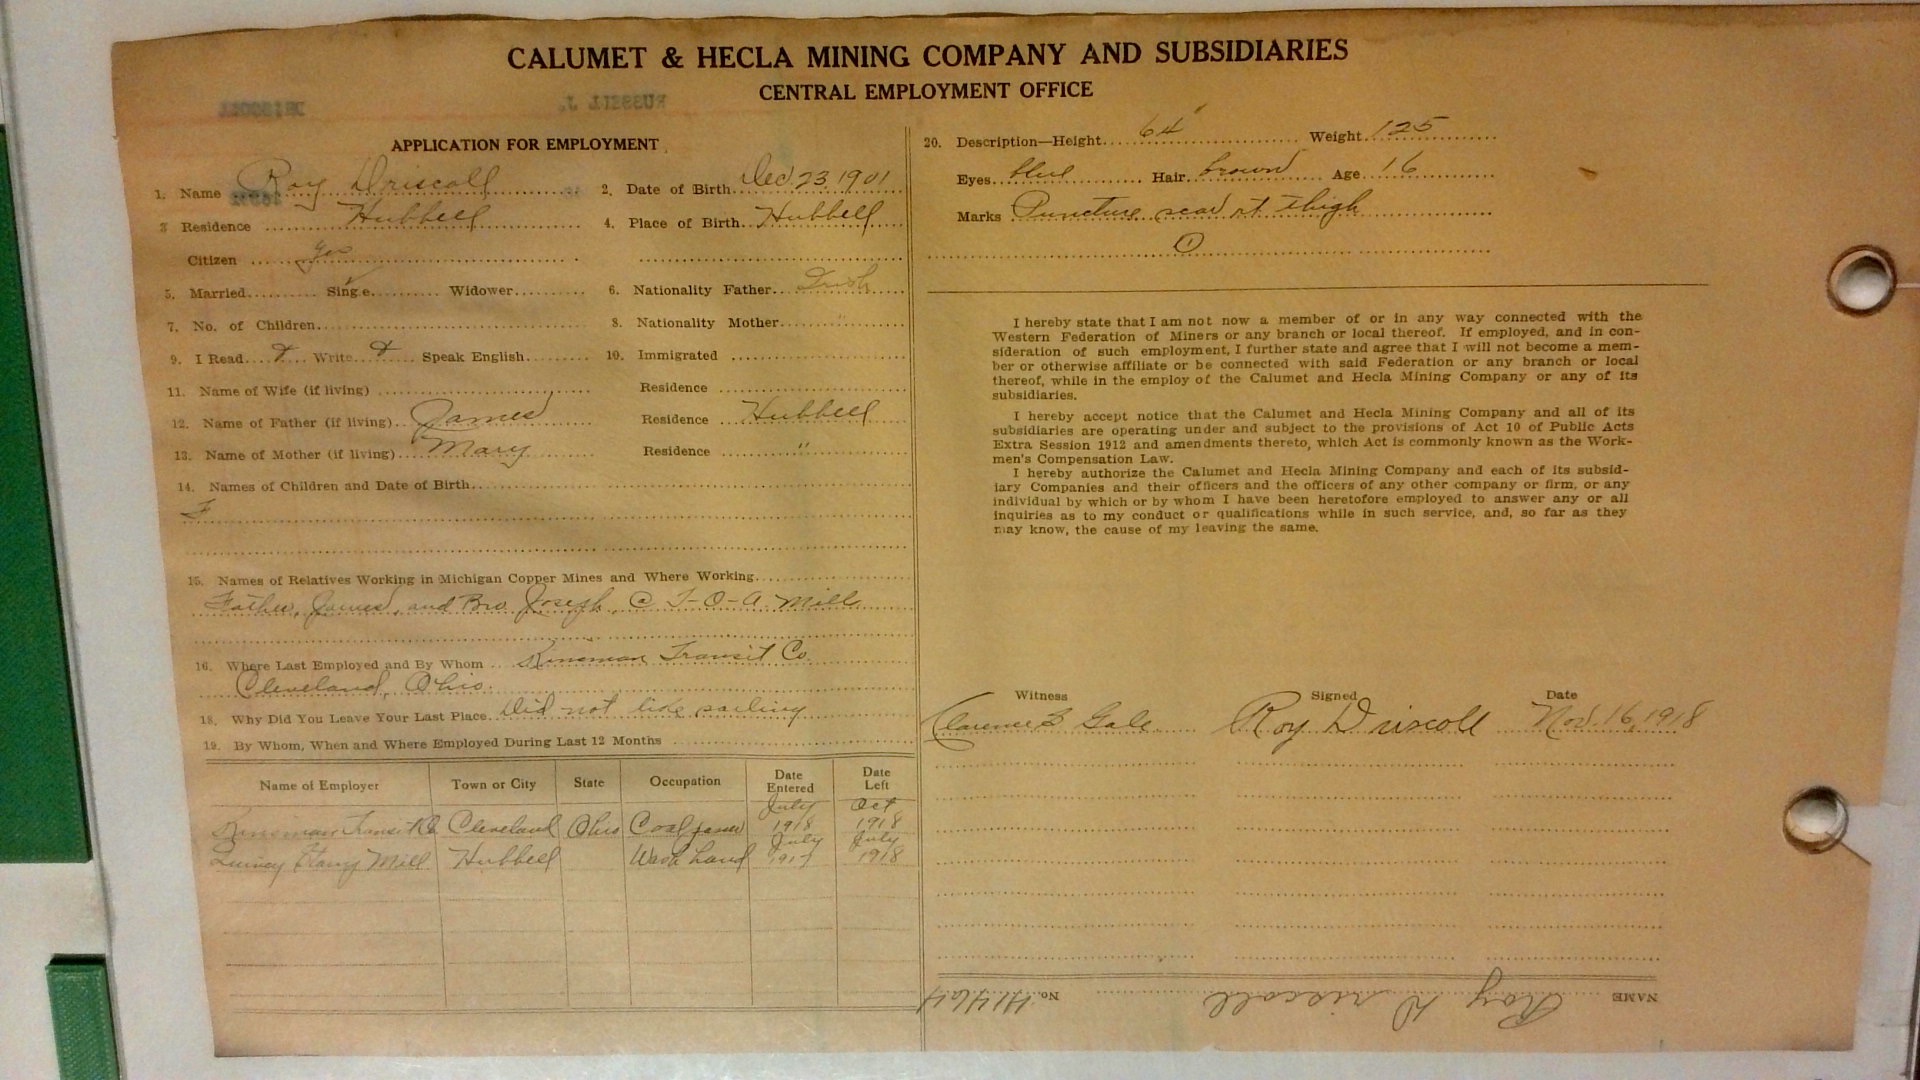 CALUMET & HECLA MINING COMPANY AND SUBSIDIARIES
CENTRAL EMPLOYMENT OFFICE
RUSSELL J.
DRISCOLL
APPLICATION FOR EMPLOYMENT
1. Name Roy Driscoll
2. Date of Birth Dec 23, 1901
3 Residence Hubbell
4. Place of Birth Hubbell
Citizen yes
5. Married Single Widower
6. Nationality Father Irish
7. No. of Children
8. Nationality Mother "
9. I Read Write Speak English
10. Immigrated
11. Name of Wife (if living)
Residence
12. Name of Father (if living) James
Residence Hubbell
13. Name of Mother (if living) Mary
Residence "
14. Names of Children and Date of Birth
F
15. Names of Relatives Working in Michigan Copper Mines and Where Working
Father, James, and Bro Joseph, @ T-O-A Mill
16. Where Last Employed and By Whom Kinsman Transit Co.
Cleveland, Ohio.
18. Why Did You Leave Your Last Place Did not like sailing
19. By Whom, When and Where Employed During Last 12 Months
Name of Employer Town or City State Occupation Date Entered Date Left
Kinsman Transit Co Cleveland Ohio Coal passer July 1918 Oct 1918
Quincy Stamp Mill Hubbell Wash hand July 1917 July 1918
20. Description—Height 64" Weight 125
Eyes blue Hair brown Age 16
Marks Puncture scar rt thigh
I hereby state that I am not now a member of or in any way connected with the
Western Federation of Miners or any branch or local thereof. If employed, and in con-
sideration of such employment, I further state and agree that I will not become a mem-
ber or otherwise affiliate or be connected with said Federation or any branch or local
thereof, while in the employ of the Calumet and Hecla Mining Company or any of its
subsidiaries.
I hereby accept notice that the Calumet and Hecla Mining Company and all of its
subsidiaries are operating under and subject to the provisions of Act 10 of Public Acts
Extra Session 1912 and amendments thereto, which Act is commonly known as the Work-
men's Compensation Law.
I hereby authorize the Calumet and Hecla Mining Company and each of its subsid-
iary Companies and their officers and the officers of any other company or firm, or any
individual by which or by whom I have been heretofore employed to answer any or all
inquiries as to my conduct or qualifications while in such service, and, so far as they
may know, the cause of my leaving the same.
Witness Signed Date
Clarence B Gale Roy Driscoll Nov. 16, 1918
NAME Roy Driscoll No. 41464